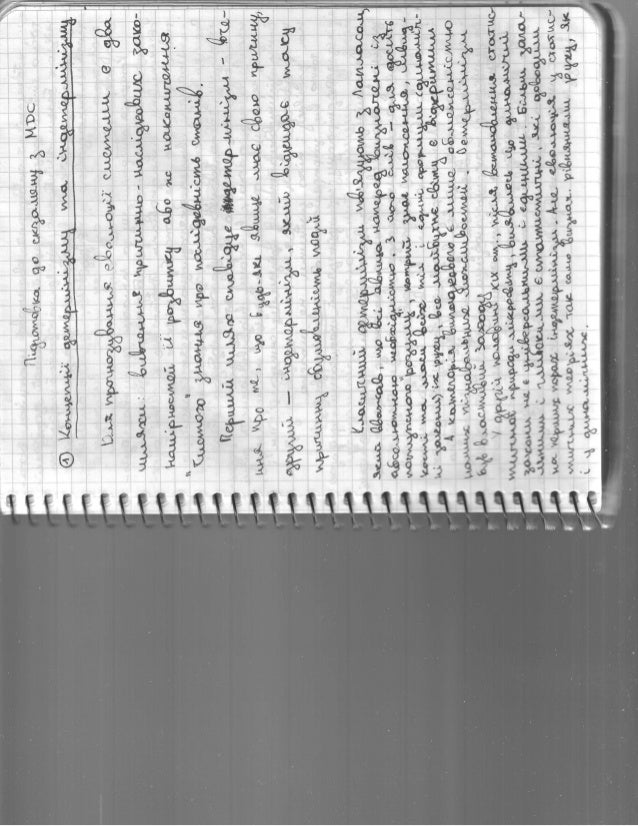 Підготовка до екзамену з МДС
① Концепції детермінізму та індетермінізму
Для прогнозування еволюції системи є два
шляхи: вивчення причинно-наслідкових зако-
номірностей її розвитку або ж накопичення
"чистого" знання про послідовність станів.
Перший шлях сповідує детермінізм - вче-
ння про те, що будь-яке явище має свою причину,
другий – індетермінізм, який відкидає таку
причинну обумовленість подій
Класичний детермінізм пов'язують з Лапласом,
який вважав, що всі явища наперед визначені із
абсолютною необхідністю. З його слів – для досить
потужного розуму, котрий знає положення, швид-
кості та маси всіх тіл і єдині формули (динаміч-
ні закони) їх руху, все майбутнє світу є відкритим
А категорія випадкового є лише обмеженістю
наших пізнавальних можливостей. Детермінізм
був властивий Заходу
У другій половині XIX ст, після встановлення статис-
тичної природи мікросвіту, виявилось що динамічні
закони не є універсальними і єдиними. Більш зага-
льними і глибокими є статистичні, які доводили
на перших порах індетермінізм. Але еволюція у статис-
тичних теоріях так само визнач. рівняннями руху, як
і у динамічних.